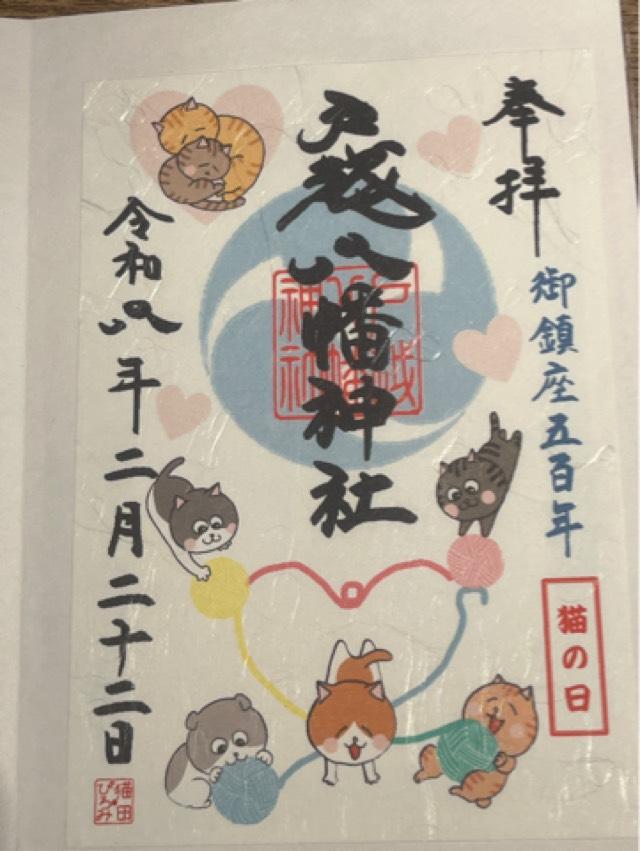 奉拝
御鎮座五百年
猫の日
戸越八幡神社
戸越八幡神社
令和八年二月二十二日
猫田ぴろみ